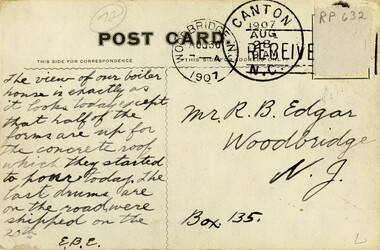 RP 632
POST CARD
THIS SIDE FOR CORRESPONDENCE
WOODBRIDGE N.J.
AUG 30
1907
CANTON
1907
AUG
28
N.C.
RECEIVE
The view of our boiler
house is exactly as
it looks today except
that half of the
forms are up for
the concrete roof
which they started
to pour today. The
last drums are
on the road, were
shipped on the
E.B.E.
Mr. R. B. Edgar
Woodbridge
N. J.
Box 135.